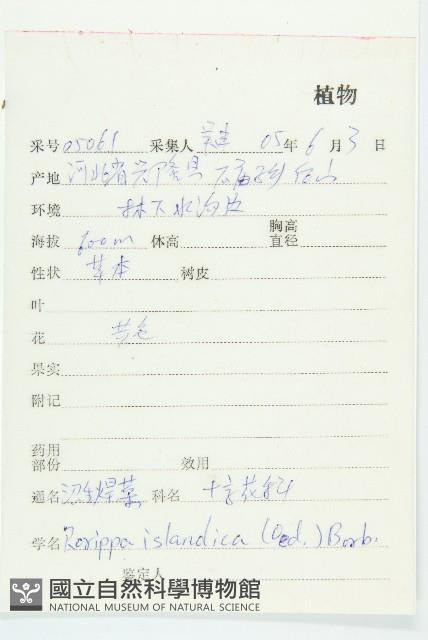 植物
采号 05061 采集人 05年 6月 3日
产地 河北省兴隆县
环境 林下水沟边
海拔 800m 体高 胸高直径
性状 草本 树皮
叶
花 黄色
果实
附记
药用部份 效用
通名 沼生蔊菜 科名 十字花科
学名 Rorippa islandica (Oed.) Borb.
鉴定人
國立自然科學博物館
NATIONAL MUSEUM OF NATURAL SCIENCE